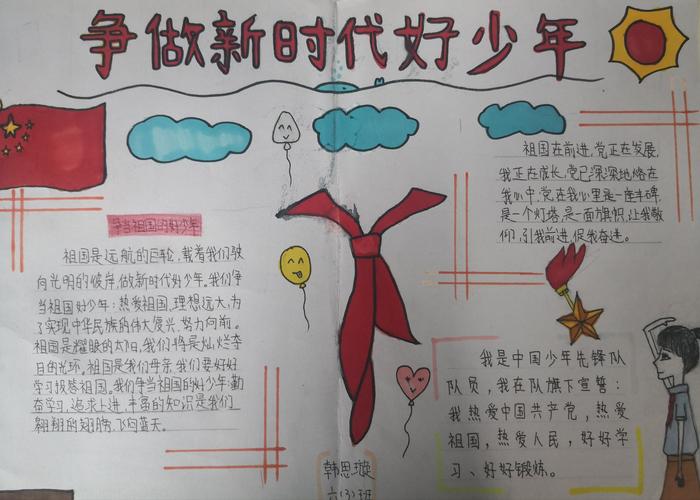 争做新时代好少年
争当祖国的好少年
祖国是远航的巨轮,载着我们驶
向光明的彼岸,做新时代好少年。我们争
当祖国好少年:热爱祖国,理想远大,为
了实现中华民族的伟大复兴,努力向前。
祖国是耀眼的太阳,我们将是灿烂夺
目的光环,祖国是我们母亲,我们要好好
学习报答祖国。我们争当祖国的好少年:勤
奋学习,追求上进,丰富的知识是我们
翱翔的翅膀,飞向蓝天。
祖国在前进,党正在发展,
我正在成长,党已深深地熔在
我心中,党在我心里是一座丰碑,
是一个灯塔,是一面旗帜,让我敬
仰,引我前进,促我奋进。
我是中国少年先锋队
队员,我在队旗下宣誓:
我热爱中国共产党,热爱
祖国,热爱人民,好好学
习、好好锻炼。
韩思璇
六(3)班